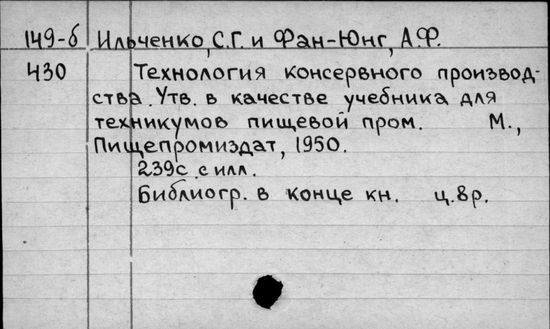 149-б Ильченко, С.Г. и Фан-Юнг, А.Ф.
430 Технология консервного производ-
ства. Утв. в качестве учебника для
техникумов пищевой пром. М.,
Пищепромиздат, 1950.
239с. с илл.
Библиогр. в конце кн. ц. 8р.